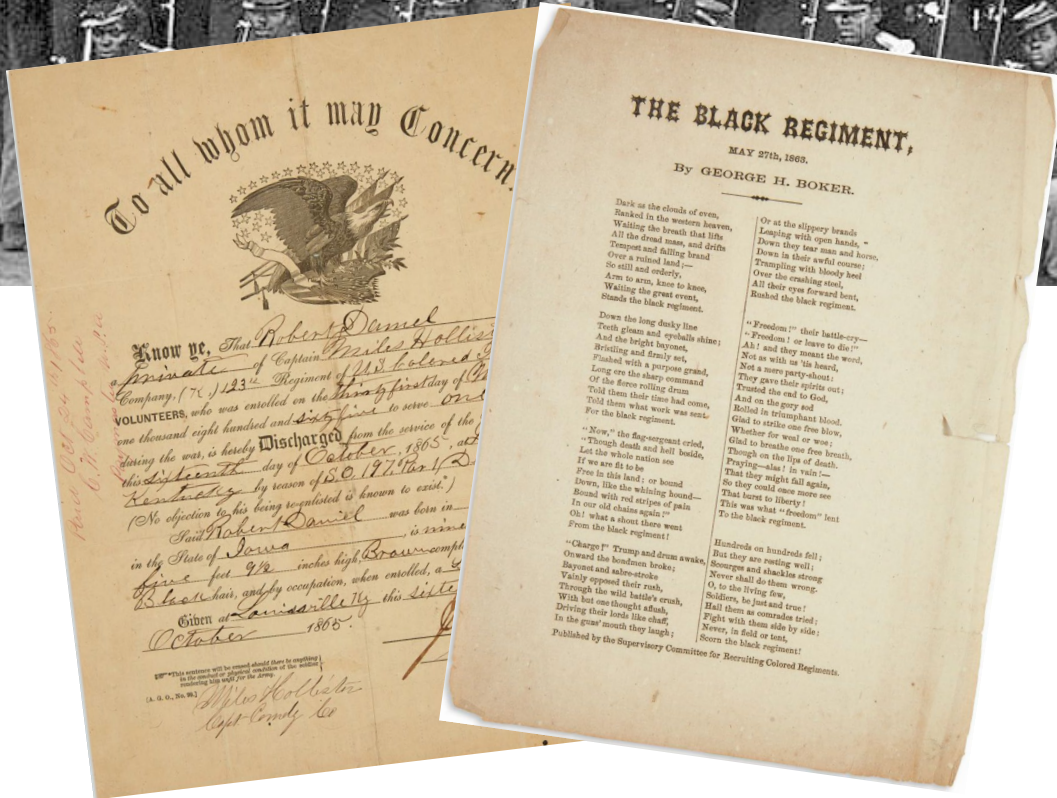 To all whom it may Concern.
Know ye, That Robert Daniel
a private of Captain Miles Hollis
Company, (K,) 123rd Regiment of U.S. Colored
VOLUNTEERS, who was enrolled on the thirty first day of
one thousand eight hundred and sixty five to serve one
during the war, is hereby Discharged from the service of the
this Sixteenth day of October, 1865, at
Kentucky by reason of S.O. 197 Par 1 D
(No objection to his being re-enlisted is known to exist.)
Said Robert Daniel was born in
in the State of Iowa, is nine
five feet 9½ inches high, Brown compl
Black hair, and by occupation, when enrolled, a
Given at Louisville Ky this sixte
October 1865.
This sentence will be erased should there be anything
in the conduct or physical condition of the soldier
rendering him unfit for the Army.
[A. G. O., No. 99.]
Miles Hollister
Capt Comdg Co
THE BLACK REGIMENT,
MAY 27th, 1863.
By GEORGE H. BOKER.
Dark as the clouds of even,
Ranked in the western heaven,
Waiting the breath that lifts
All the dread mass, and drifts
Tempest and falling brand
Over a ruined land;—
So still and orderly,
Arm to arm, knee to knee,
Waiting the great event,
Stands the black regiment.
Down the long dusky line
Teeth gleam and eyeballs shine;
And the bright bayonet,
Bristling and firmly set,
Flashed with a purpose grand,
Long ere the sharp command
Of the fierce rolling drum
Told them their time had come,
Told them what work was sent
For the black regiment.
"Now," the flag-sergeant cried,
"Though death and hell beside,
Let the whole nation see
If we are fit to be
Free in this land: or bound
Down, like the whining hound—
Bound with red stripes of pain
In our old chains again!"
Oh! what a shout there went
From the black regiment!
"Charge!" Trump and drum awake,
Onward the bondmen broke;
Bayonet and sabre-stroke
Vainly opposed their rush,
Through the wild battle's crush,
With but one thought aflush,
Driving their lords like chaff,
In the guns' mouth they laugh;
Or at the slippery brands
Leaping with open hands,
Down they tear man and horse,
Down in their awful course;
Trampling with bloody heel
Over the crashing steel,
All their eyes forward bent,
Rushed the black regiment.
"Freedom!" their battle-cry—
"Freedom! or leave to die!"
Ah! and they meant the word,
Not as with us 'tis heard,
Not a mere party-shout:
They gave their spirits out;
Trusted the end to God,
And on the gory sod
Rolled in triumphant blood.
Glad to strike one free blow,
Whether for weal or woe;
Glad to breathe one free breath,
Though on the lips of death.
Praying—alas! in vain!—
That they might fall again,
So they could once more see
That burst to liberty!
This was what "freedom" lent
To the black regiment.
Hundreds on hundreds fell;
But they are resting well;
Scourges and shackles strong
Never shall do them wrong.
O, to the living few,
Soldiers, be just and true!
Hail them as comrades tried;
Fight with them side by side;
Never, in field or tent,
Scorn the black regiment!
Published by the Supervisory Committee for Recruiting Colored Regiments.